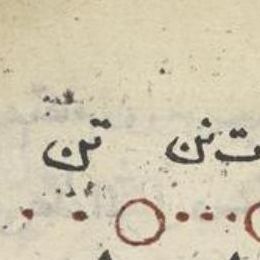 ت تن تن